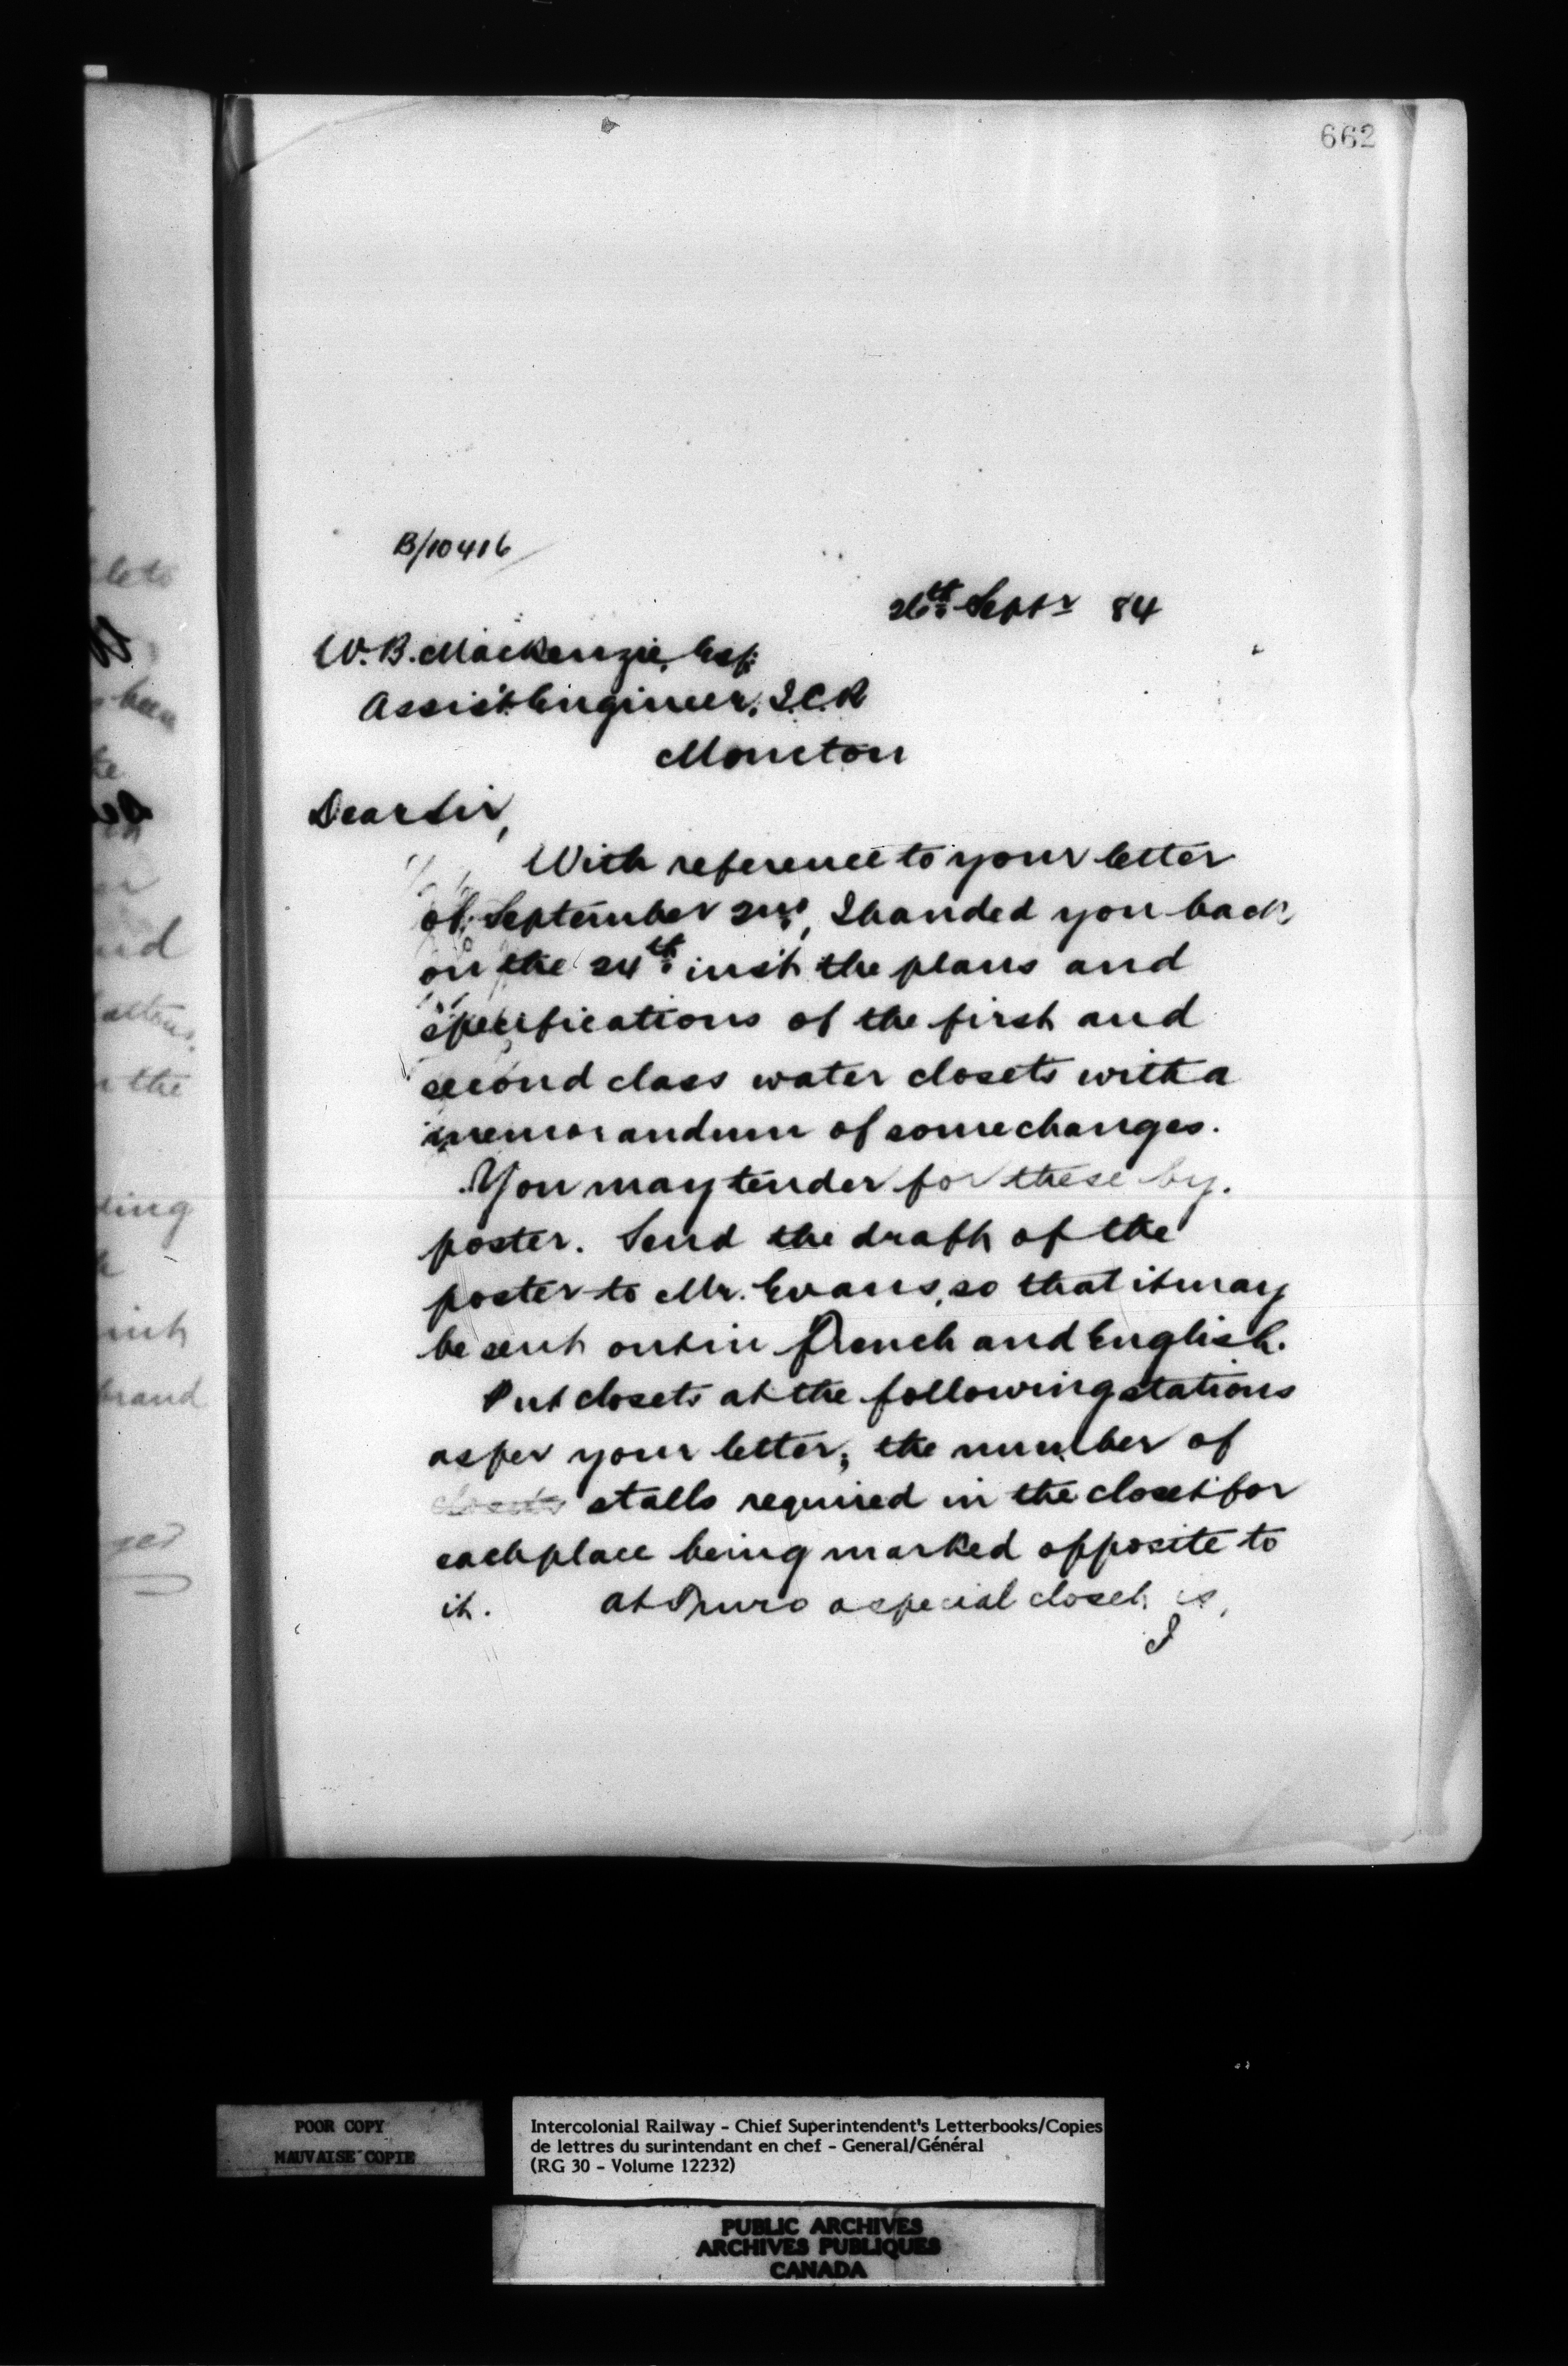 662
B/10416
26th Septr 84
W. B. Mackenzie, Esq:
Assist Engineer, I.C.R
Moncton
Dear Sir,
With reference to your letter
of September 2nd, I handed you back,
on the 24th inst the plans and
specifications of the first and
second class water closets with a
memorandum of some changes.
You may tender for these by
poster. Send the draft of the
poster to Mr. Evans, so that it may
be sent out in French and English.
Put closets at the following stations
as per your letter, the number of
closets stalls required in the closet for
each place being marked opposite to
it. At Truro a special closet is,
lets
been
the
nd
the
ding
brand
POOR COPY
MAUVAISE COPIE
Intercolonial Railway - Chief Superintendent's Letterbooks/Copies
de lettres du surintendant en chef - General/Général
(RG 30 - Volume 12232)
PUBLIC ARCHIVES
ARCHIVES PUBLIQUES
CANADA